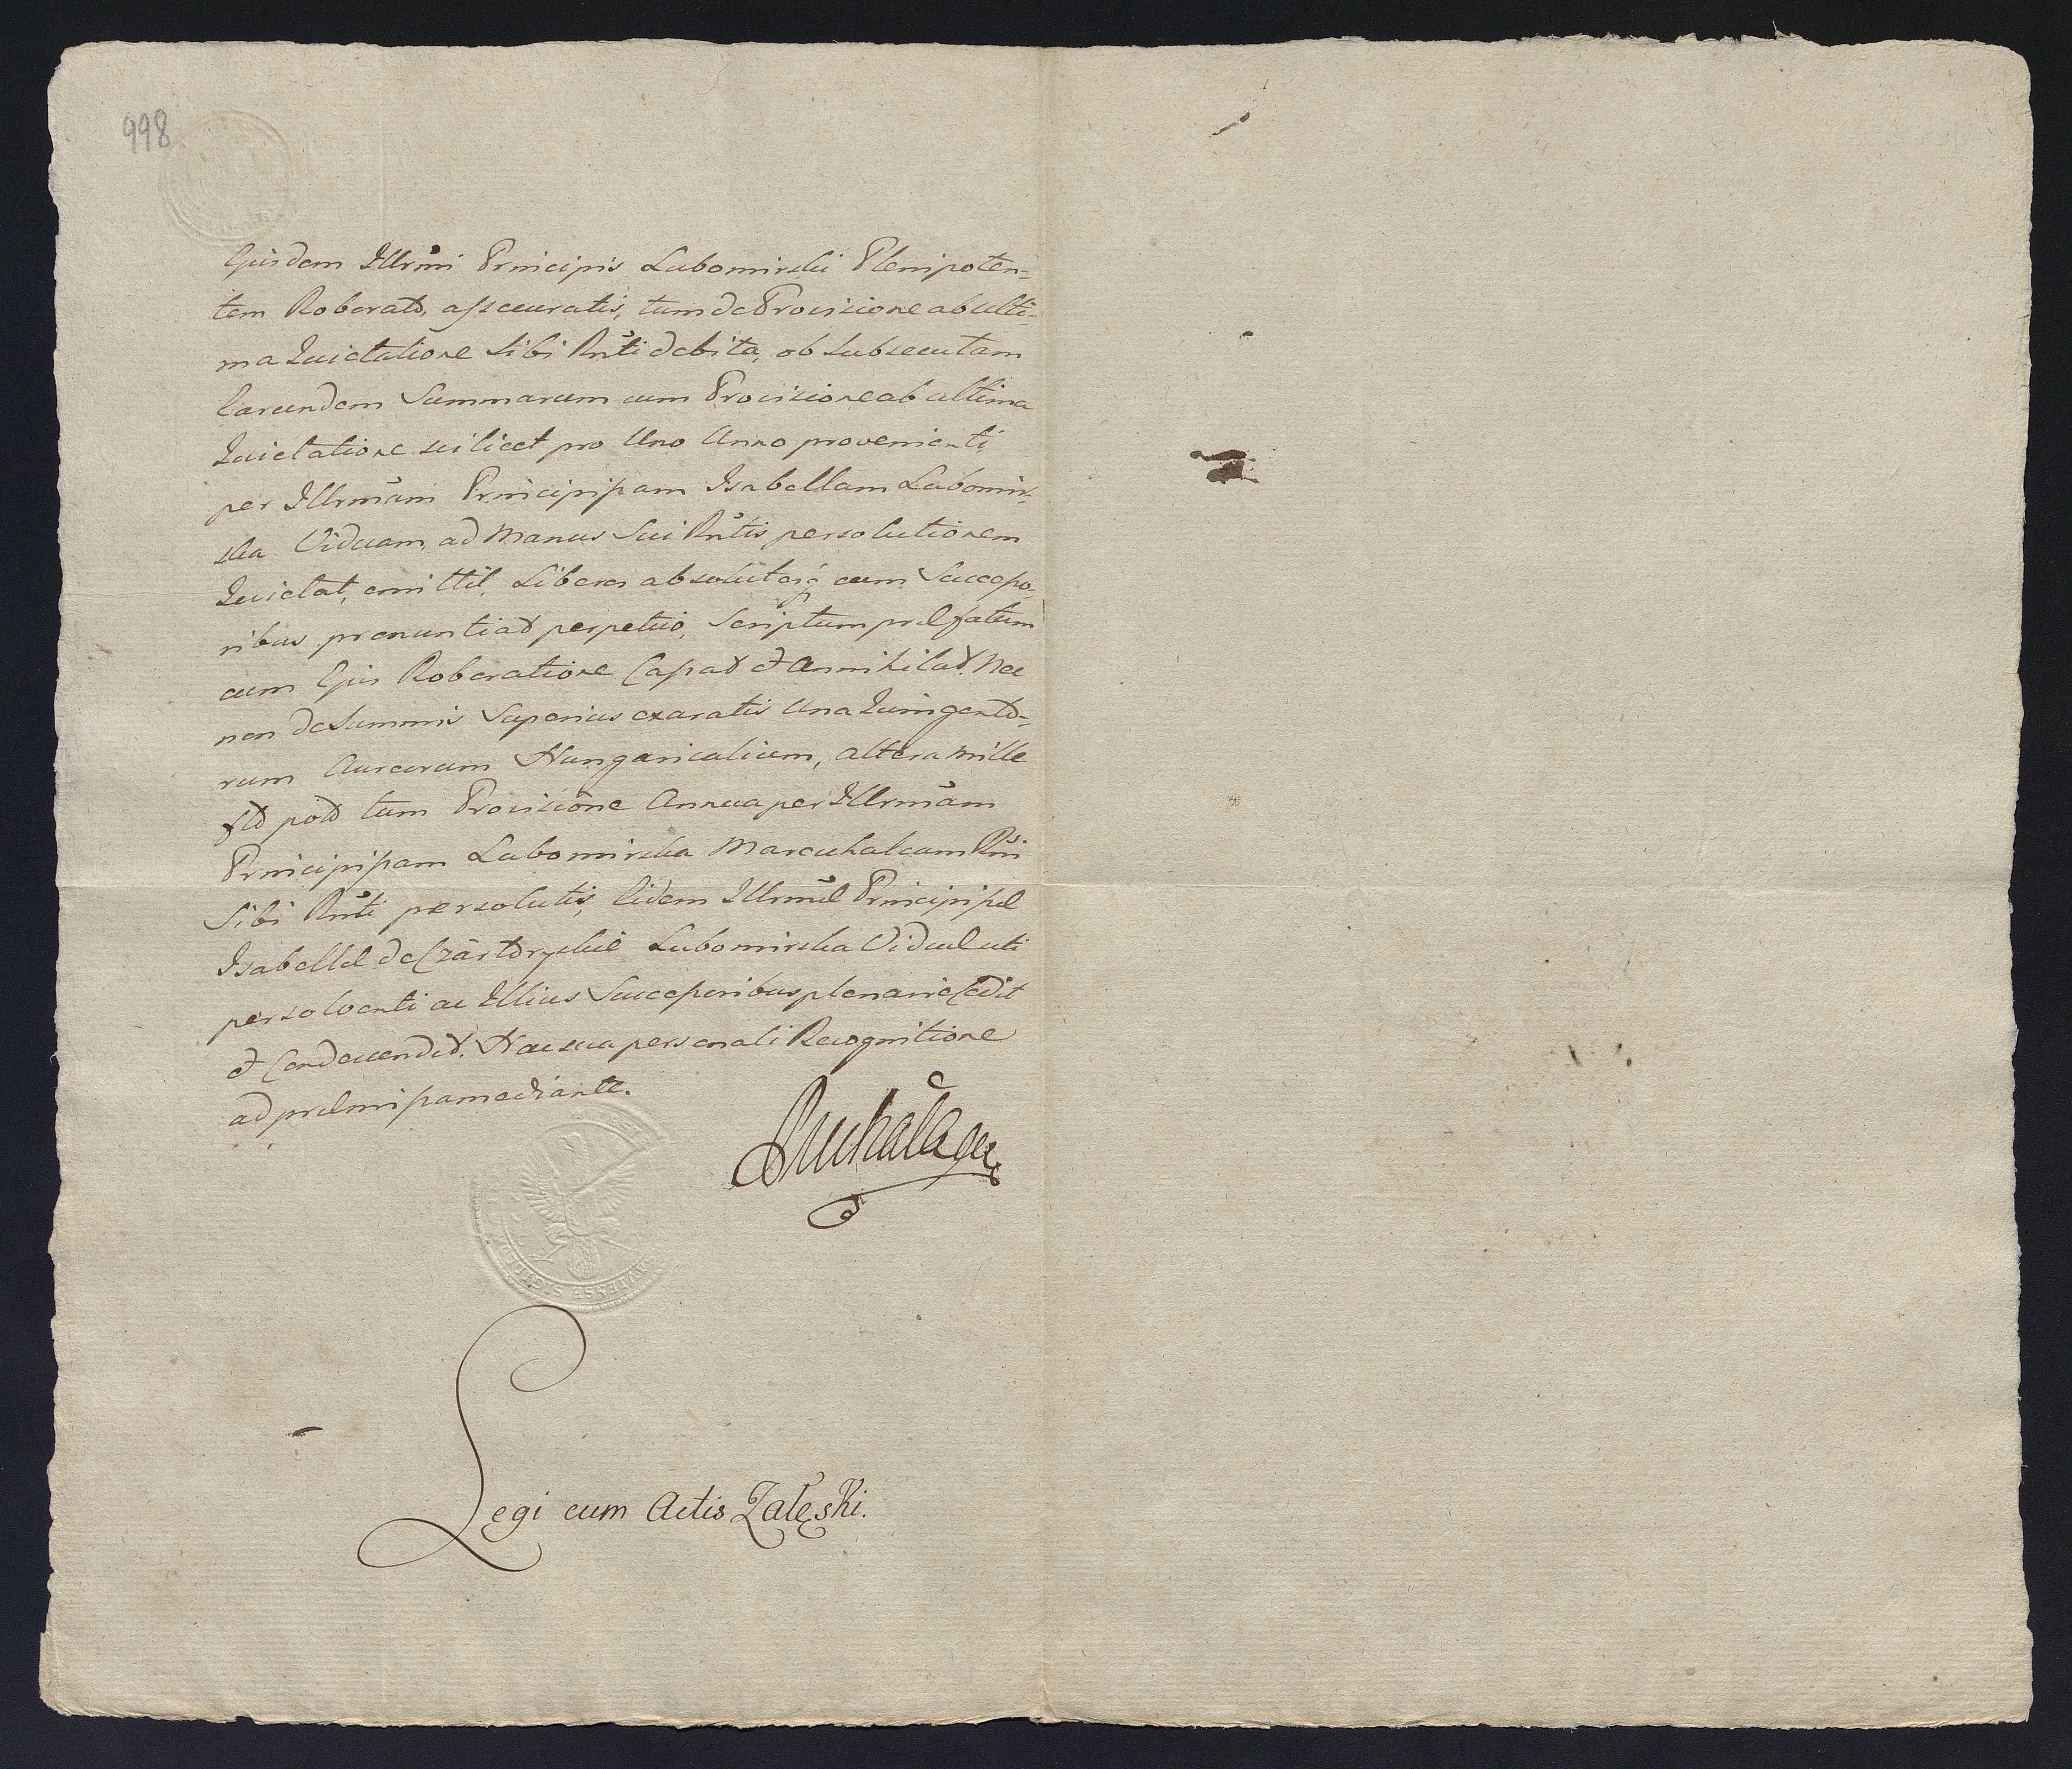 998
Ejusdem Illrmi Principis Lubomirski Plenipoten=
tem Roborato, assecuratis, tum de Provisione ab ulti=
ma Quietatione Sibi Rñti debita, ob subsecutam
Earundem Summarum cum Provisione ab ultima
Quietatione scilicet pro Uno Anno provenienti,
per Illrmam Principissam Isabellam Lubomir=
ska Viduam, ad Manus Sui Rñtis persolutionem
Quietat, emittit, Liberos absolutosq; cum Successo=
ribus pronuntiat perpetuo, Scriptum præfatum
cum Ejus Roboratione Cassat et Annihilat. Nec
non de Summis Superius exaratis Una Quingento=
rum Aureorum Hungaricalium, altera Mille
flo polo tum Provisione Annua per Illrmam
Principissam Lubomirska Mareschalcam Rni
Sibi Rñti persolutis, Eidem Illrmæ Principissæ
Isabellæ de Czartoryskie Lubomirska Viduæ uti
persolventi ac Illius Successoribus plenarie Cedit
et Condescendit. Hac sua personali Recognitione
ad præmissa mediante.
Legi cum Actis Zaleski.